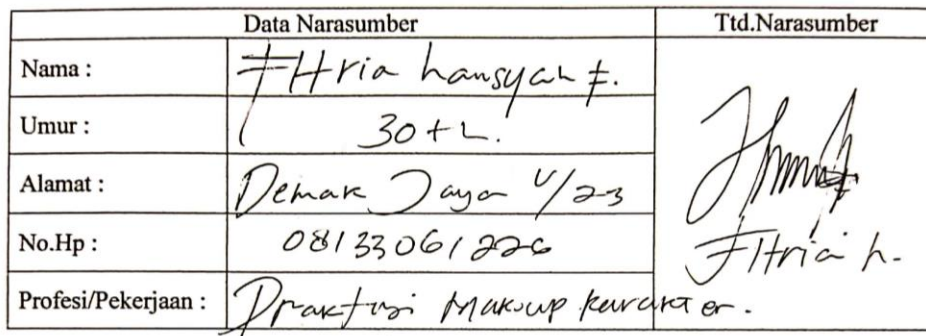 Data Narasumber Ttd.Narasumber
Nama : Fitria hansyah F.
Umur : 30 th.
Alamat : Demak Jaya V/23
No.Hp : 08133061226
Fitria h.
Profesi/Pekerjaan : Praktisi Makeup karakter.